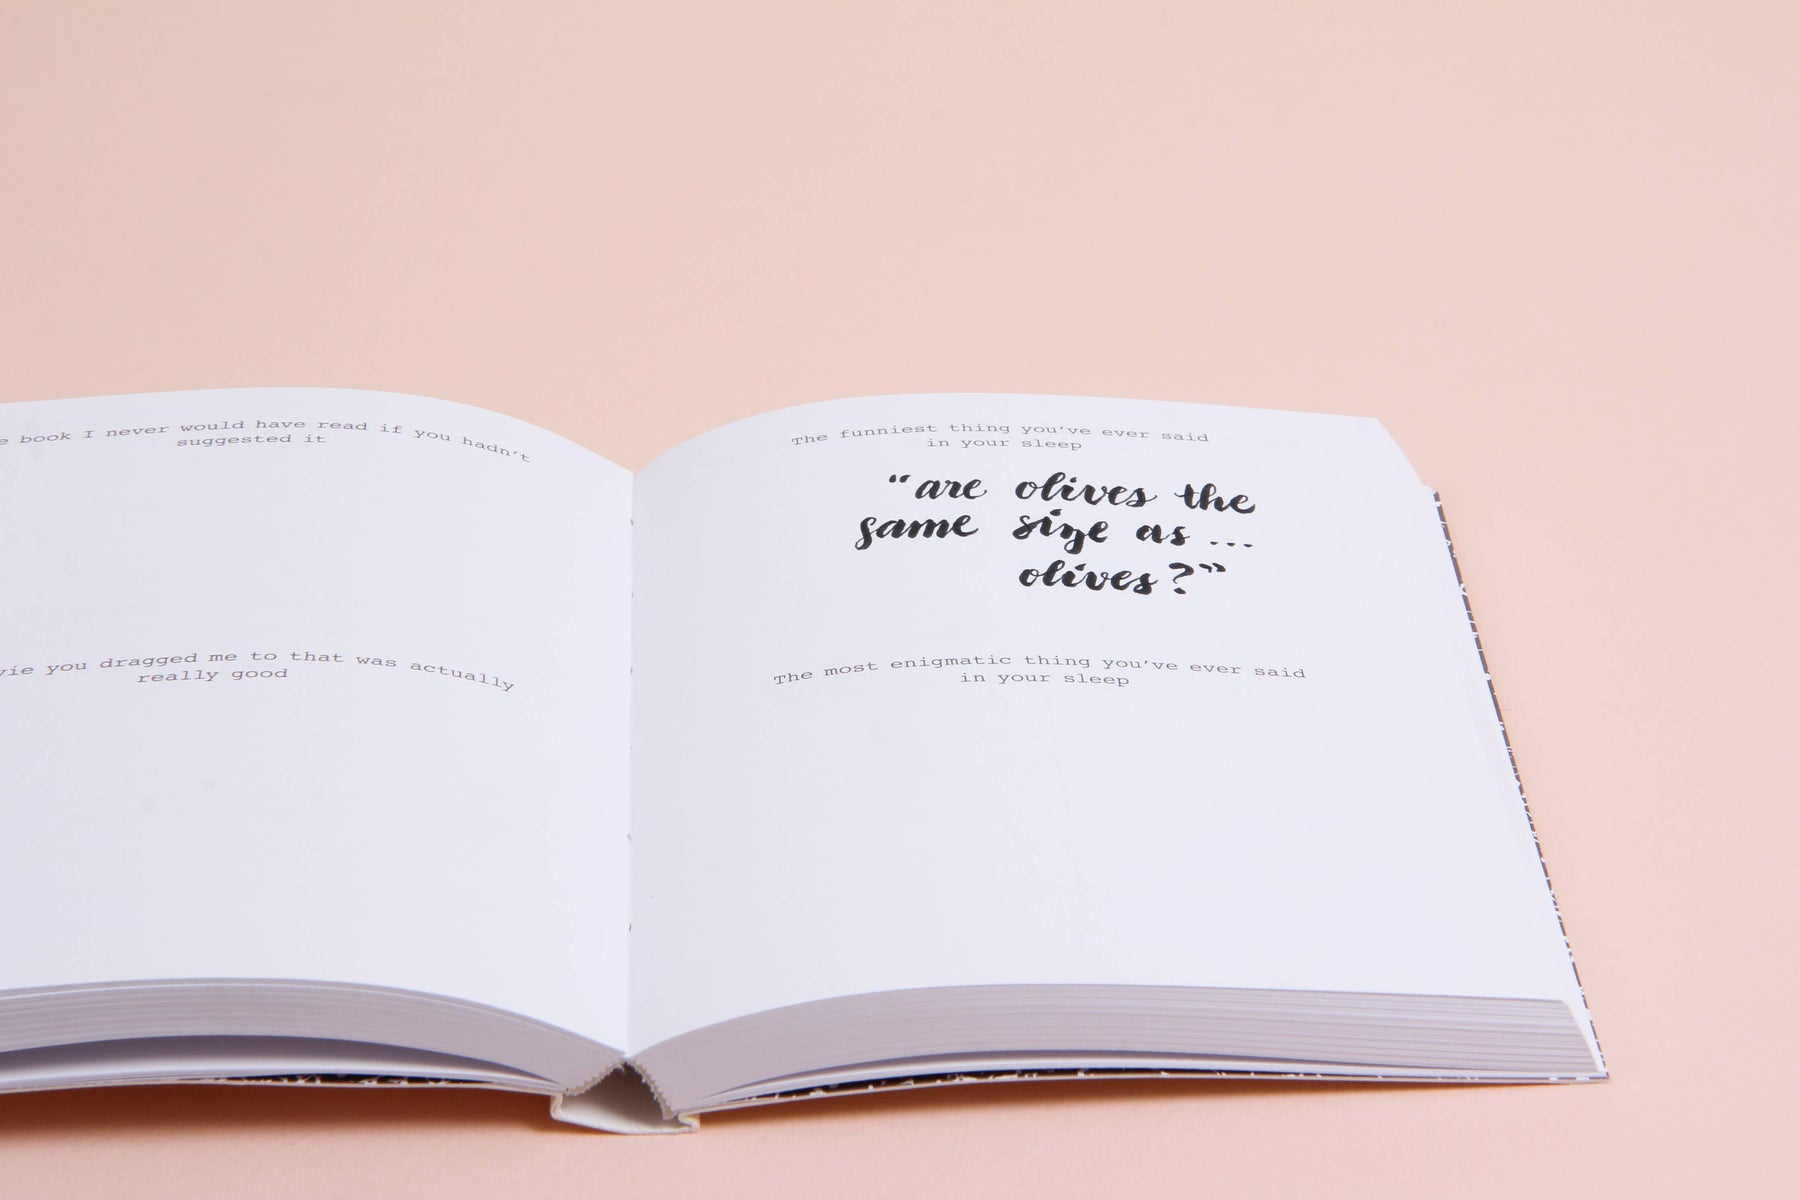 book I never would have read if you hadn't
suggested it
you dragged me to that was actually
really good
The funniest thing you've ever said
in your sleep
"are olives the
same size as...
olives?"
The most enigmatic thing you've ever said
in your sleep